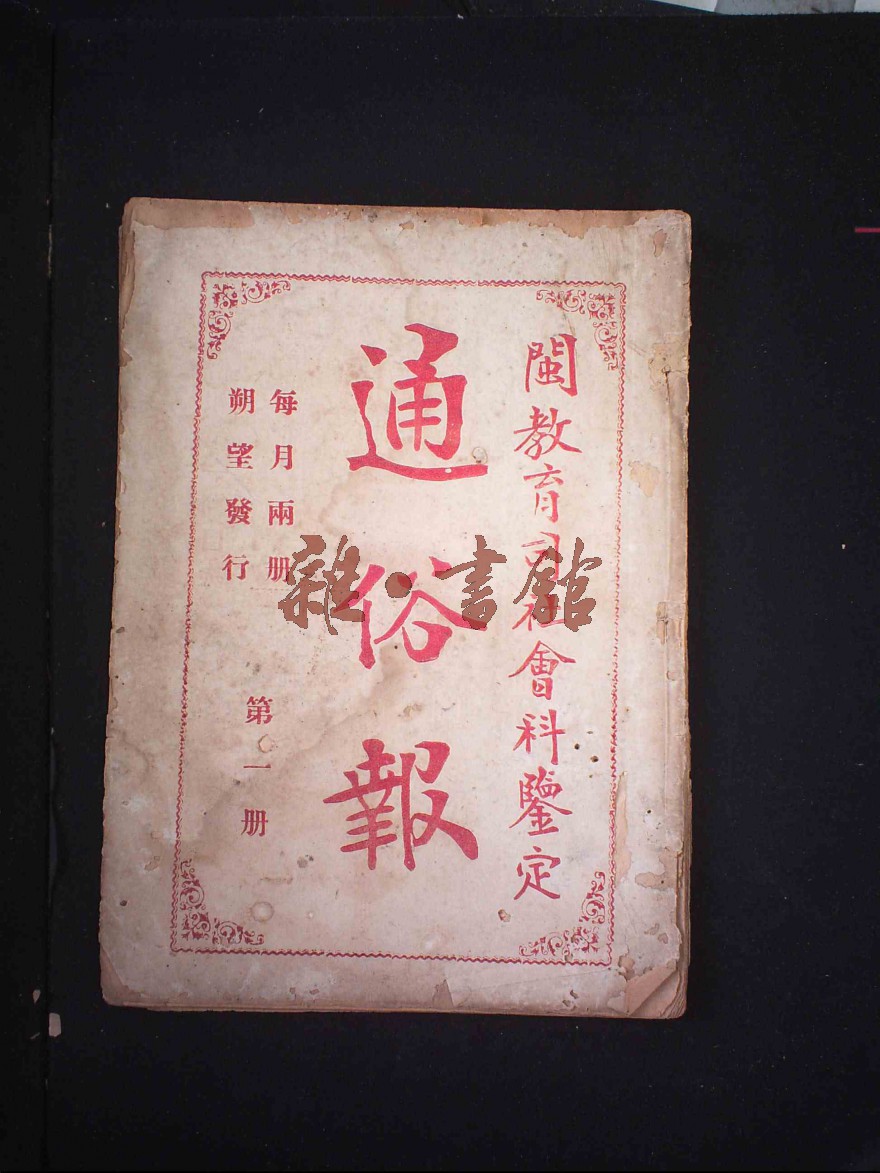 閩教育司社會科鑒定
通俗報
每月兩册
朔望發行
第一册
雜·書館